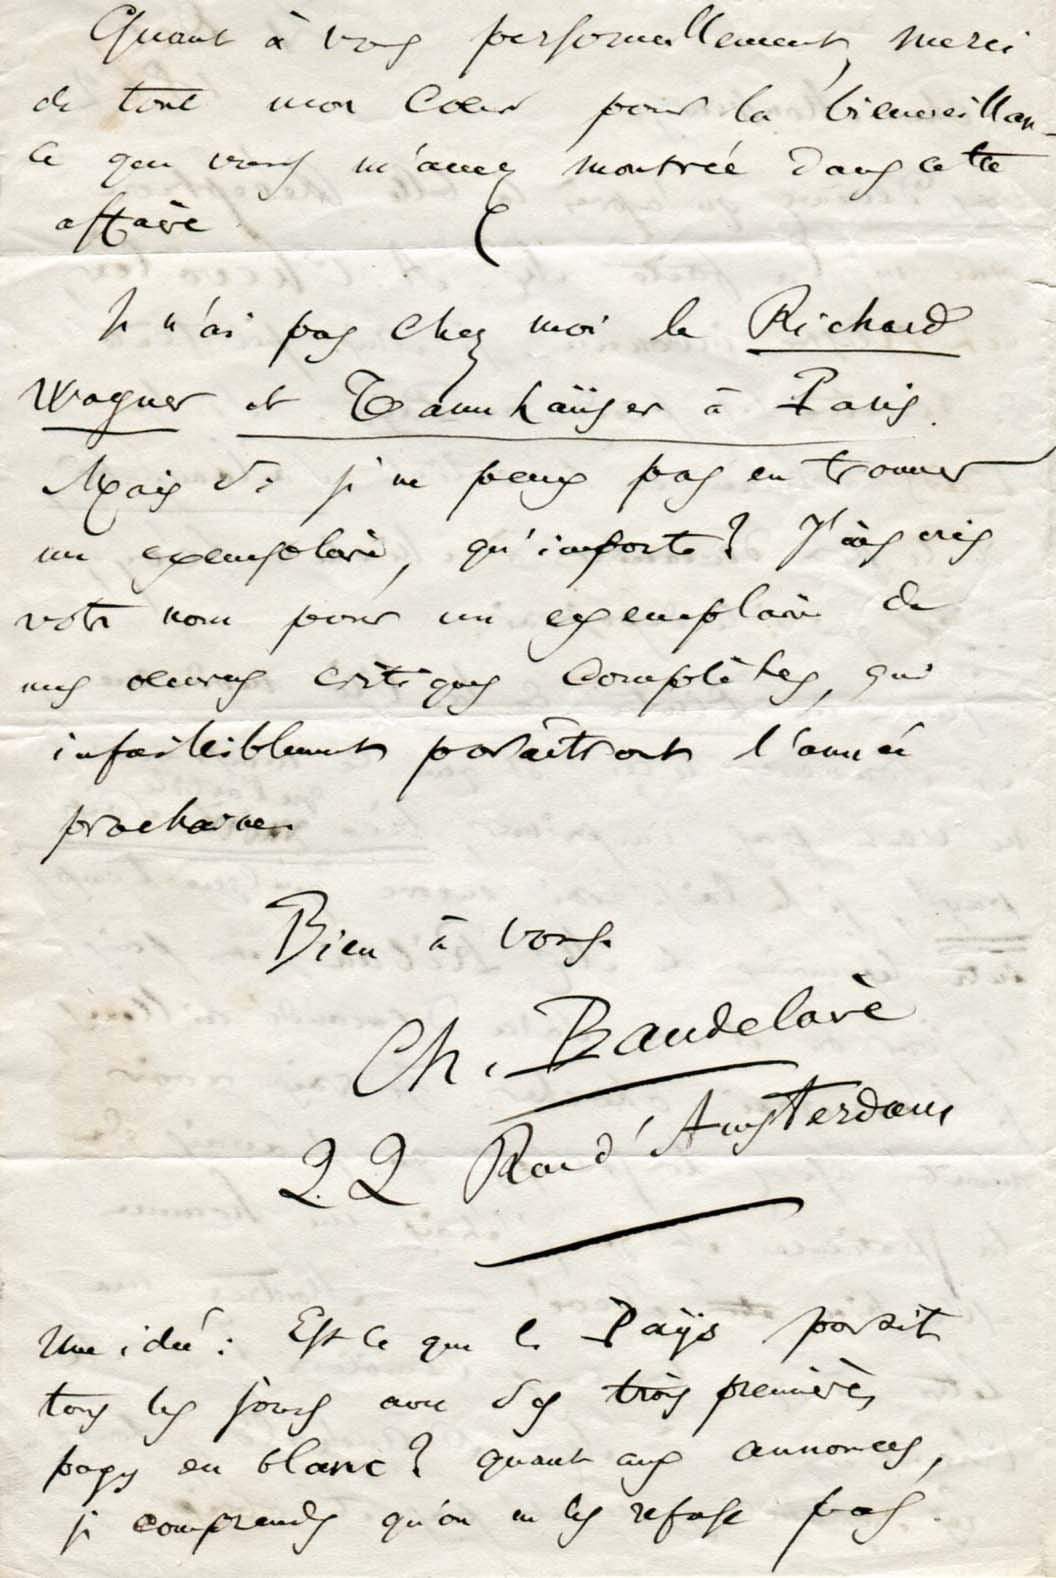 Quant à vous personnellement, merci
de tout mon cœur pour la bienveillan-
ce que vous m'avez montrée dans cette
affaire.
Je n'ai pas chez moi le Richard
Wagner et Tannhaüser à Paris.
Mais si je ne peux pas en trouver
un exemplaire, qu'importe? J'inscris
votre nom pour un exemplaire de
mes œuvres critiques complètes, qui
infailliblement paraîtront l'année
prochaine.
Bien à vous.
Ch. Baudelaire
22 Rue d'Amsterdam
Une idée: Est ce que le Païjs paraît
tous les jours avec ses trois premières
pages en blanc? quant aux annonces,
je comprends qu'on ne les refuse pas.